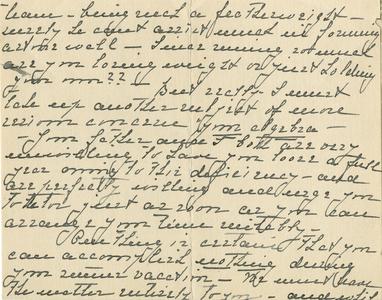 team - being such a featherweight -
surely he cant assist much in forming
- I
are you losing weight or just holding
your own?? - But really I must
take up another subject of more
serious concern your algebra -
- Your father and I both are very
unwilling to have you loose a full
year owing to this deficiency - and
are perfectly willing and urge you
to tutor just as soon as you can
arrange your time suitably -
One thing is certain that you
can accomplish nothing during
your summer vacation - We must leave
the matter entirely to you - and